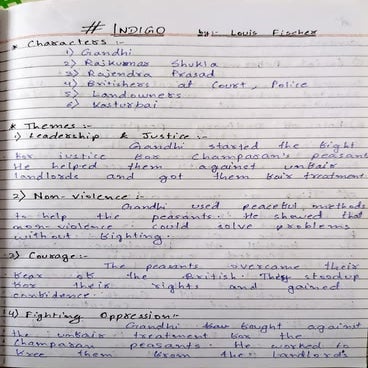 # INDIGO by:- Louis Fischer
* Characters :-
1) Gandhi
2) Rajkumar Shukla
3) Rajendra Prasad
4) Britishers at Court, Police
5) Landowners
6) Kasturbai
* Themes :-
1) Leadership & Justice :-
Gandhi started the fight
for justice for Champaran's peasant
He helped them against unfair
landlords and got them fair treatment.
2) Non-violence :-
Gandhi used peaceful methods
to help the peasants. He showed that
non-violence could solve problems
without fighting.
3) Courage :-
The peasants overcame their
fear of the British. They stoodup
for their rights and gained
confidence.
4) Fighting Oppression :-
Gandhi fought against
the unfair treatment for the
Champaran peasants. He worked to
free them from the landlords